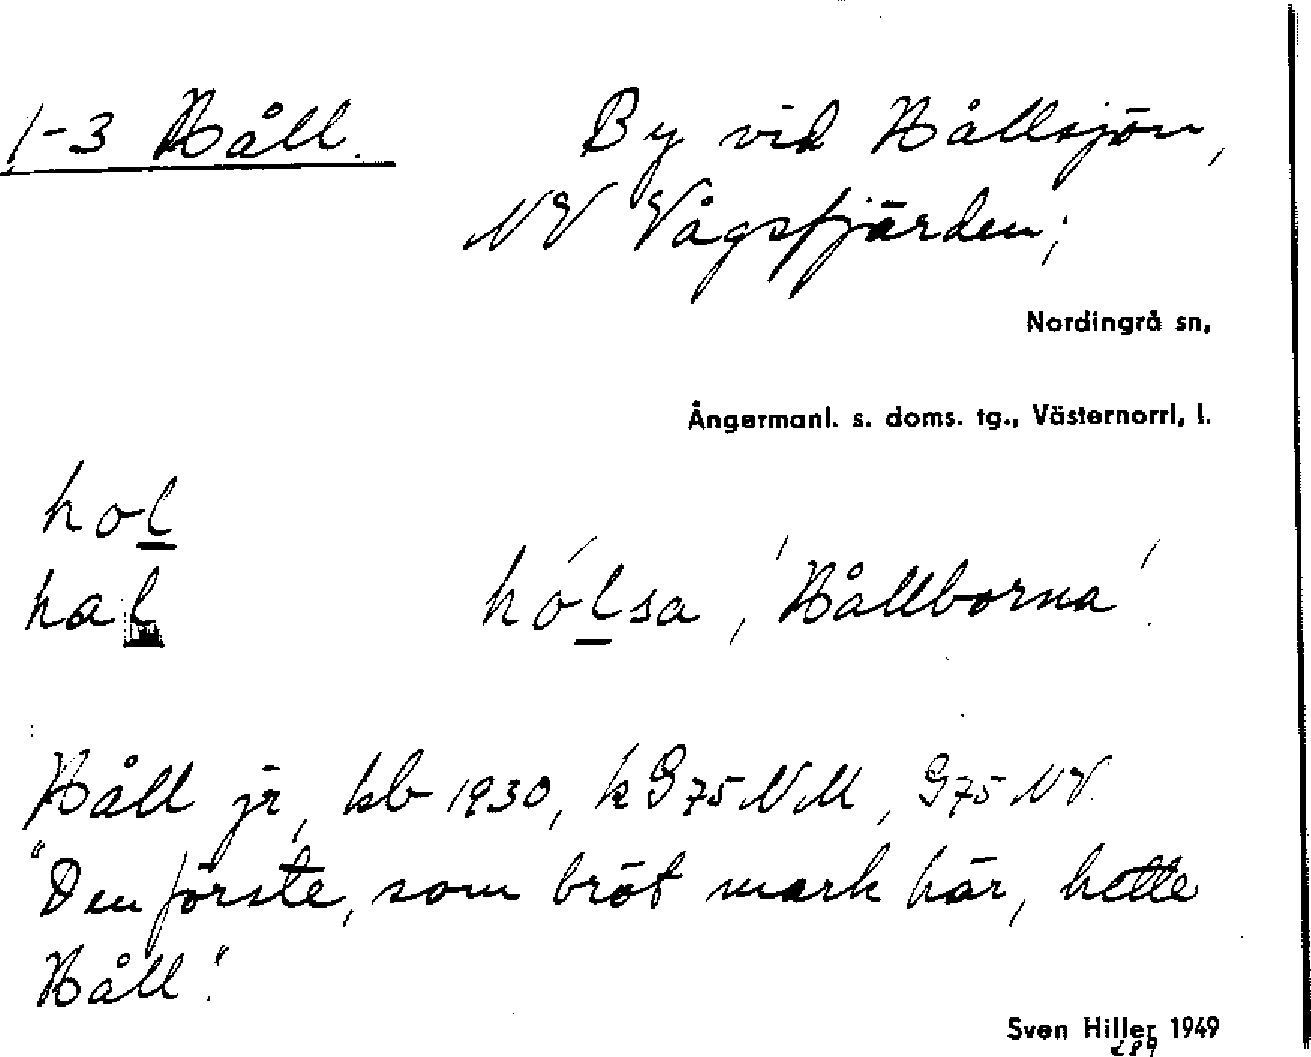 1-3 Håll.
By vid Hållsjön,
NV Vågsfjärden;
Nordingrå sn,
Ångermanl. s. doms. tg., Västernorrl. l.
hol
hal
hólsa, 'Hållborna'.
Håll jr, kb 1930, k G75 NM, G75 NV.
"Den förste, som bröt mark här, hette
Håll."
Sven Hiller 1949
289